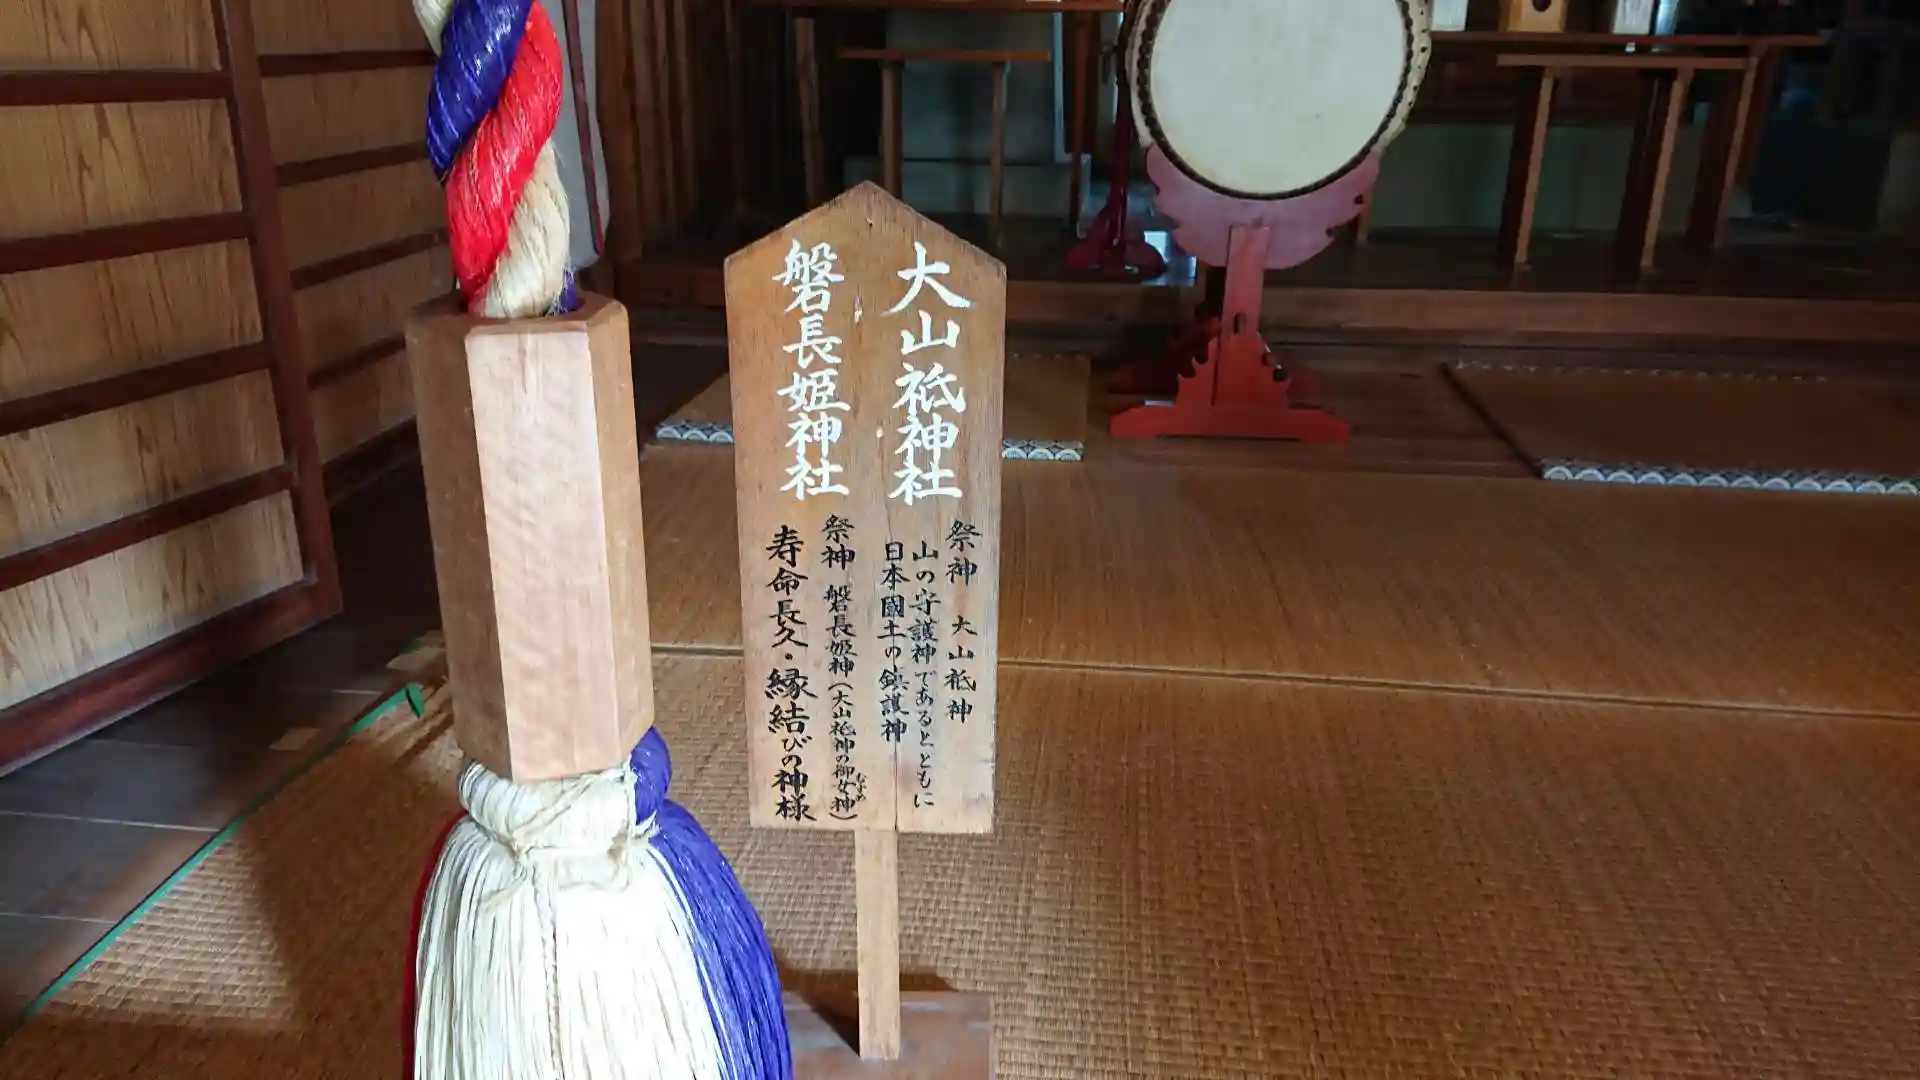 大山祇神社
祭神 大山祇神
山の守護神であるとともに
日本國土の鎮護神
磐長姫神社
祭神 磐長姫神(大山祇神の御女神)
むすめ
寿命長久・縁結びの神様